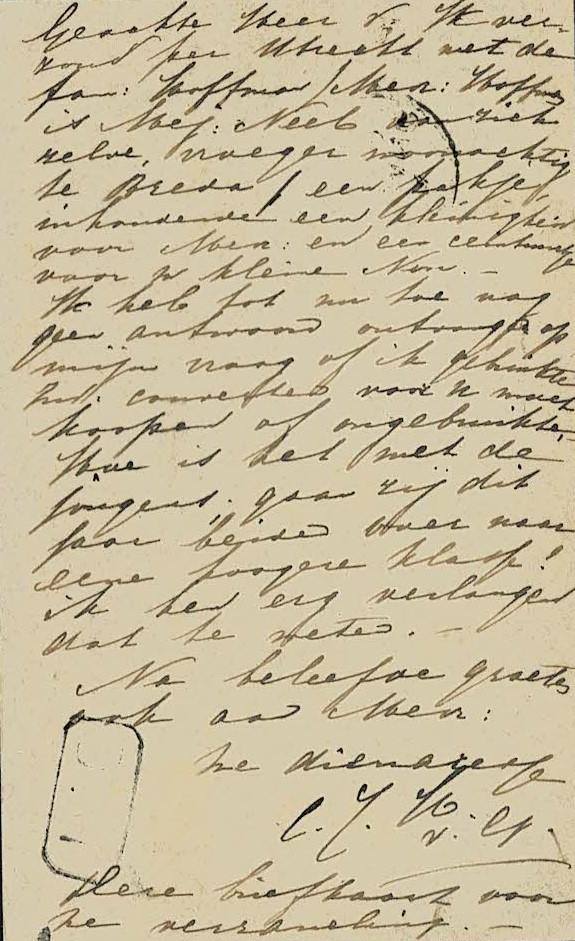 Geachte Heer v. Ik ver-
zond per Utrecht met de
fam: Hoffman / Mevr: Hoffman
is Mej: Neeb van zich
zelve, vroeger woonachtig
te Breda / een pakje,
inhoudende een kleinigheid
voor Mevr: en een
voor uw kleine Non. —
Ik heb tot nu toe nog
geen antwoord ontvangen op
mijn vraag of ik gebruikte
Ind: couverten voor u moet
koopen of ongebruikte.
Hoe is het met de
jongens, gaan zij dit
jaar beiden over naar
eene hoogere klasse?
ik ben erg verlangend
dat te weten. —
Na beleefde groeten
ook aan Mevr:
Uwe dienaresse
C. J. H.
v. G.
Deze briefkaart voor
Uwe verzameling. —